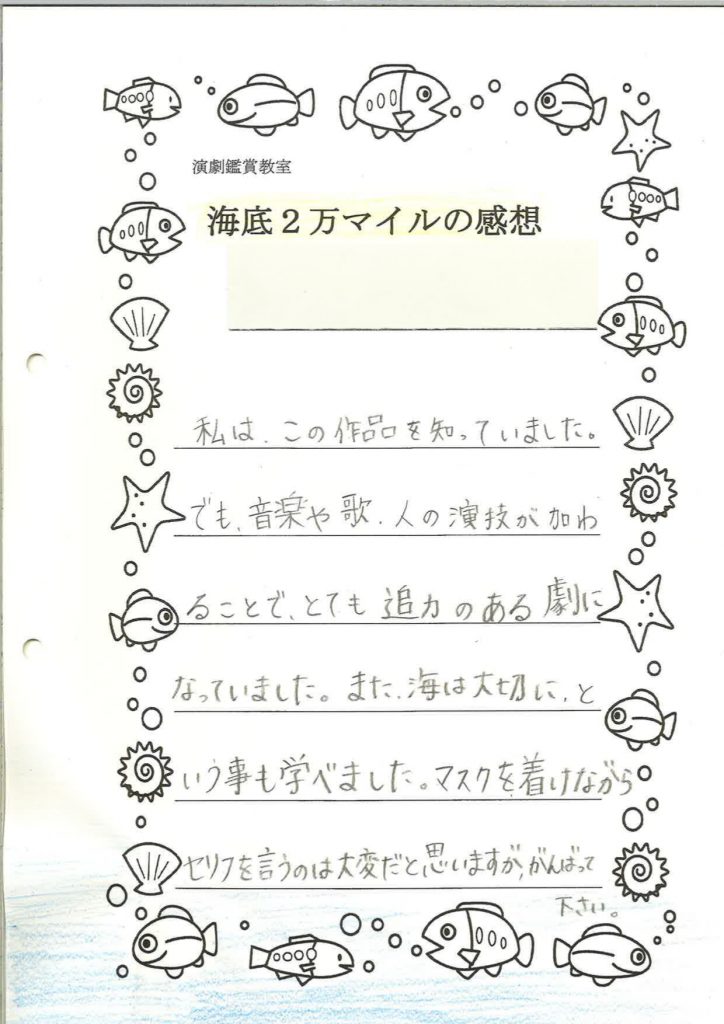 演劇鑑賞教室
海底２万マイルの感想
私は、この作品を知っていました。
でも、音楽や歌、人の演技が加わ
ることで、とても追力のある劇に
なっていました。また、海は大切に、と
いう事も学べました。マスクを着けながら
セリフを言うのは大変だと思いますが、がんばって
下さい。